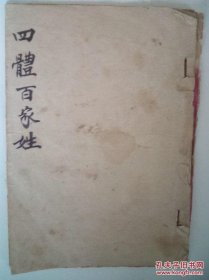 四體百家姓
孔夫子旧书网